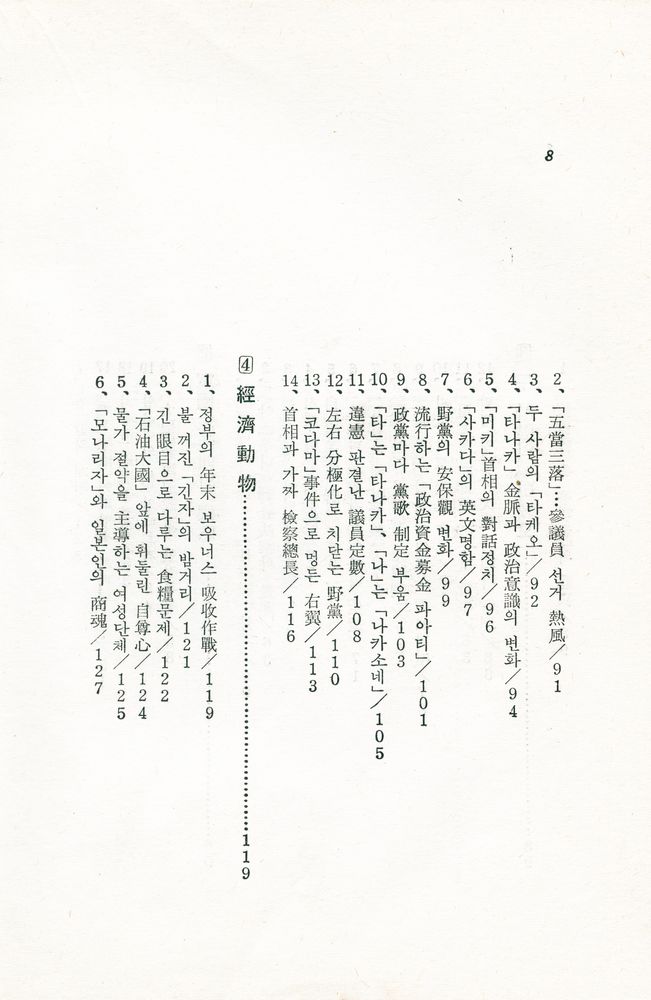 8
2、「五當三落」…參議員 선거 熱風／91
3、두 사람의「타케오」／92
4、「타나카」金脈과 政治意識의 변화／94
5、「미키」首相의 對話정치／96
6、「사카다」의 英文명함／97
7、野黨의 安保觀 변화／99
8、流行하는「政治資金募金 파아티」／101
9、政黨마다 黨歌 制定 부움／103
10、「타」는「타나카」、「나」는「나카소네」／105
11、違憲 판결난 議員定數／108
12、左右 分極化로 치닫는 野黨／110
13、「코다마」事件으로 멍든 右翼／113
14、首相과 가짜 檢察總長／116
4 經濟動物……119
1、정부의 年末 보우너스 吸收作戰／119
2、불 꺼진「긴자」의 밤거리／121
3、긴 眼目으로 다루는 食糧문제／122
4、「石油大國」앞에 휘둘린 自尊心／124
5、물가 절약을 主導하는 여성단체／125
6、「모나리자」와 일본인의 商魂／127